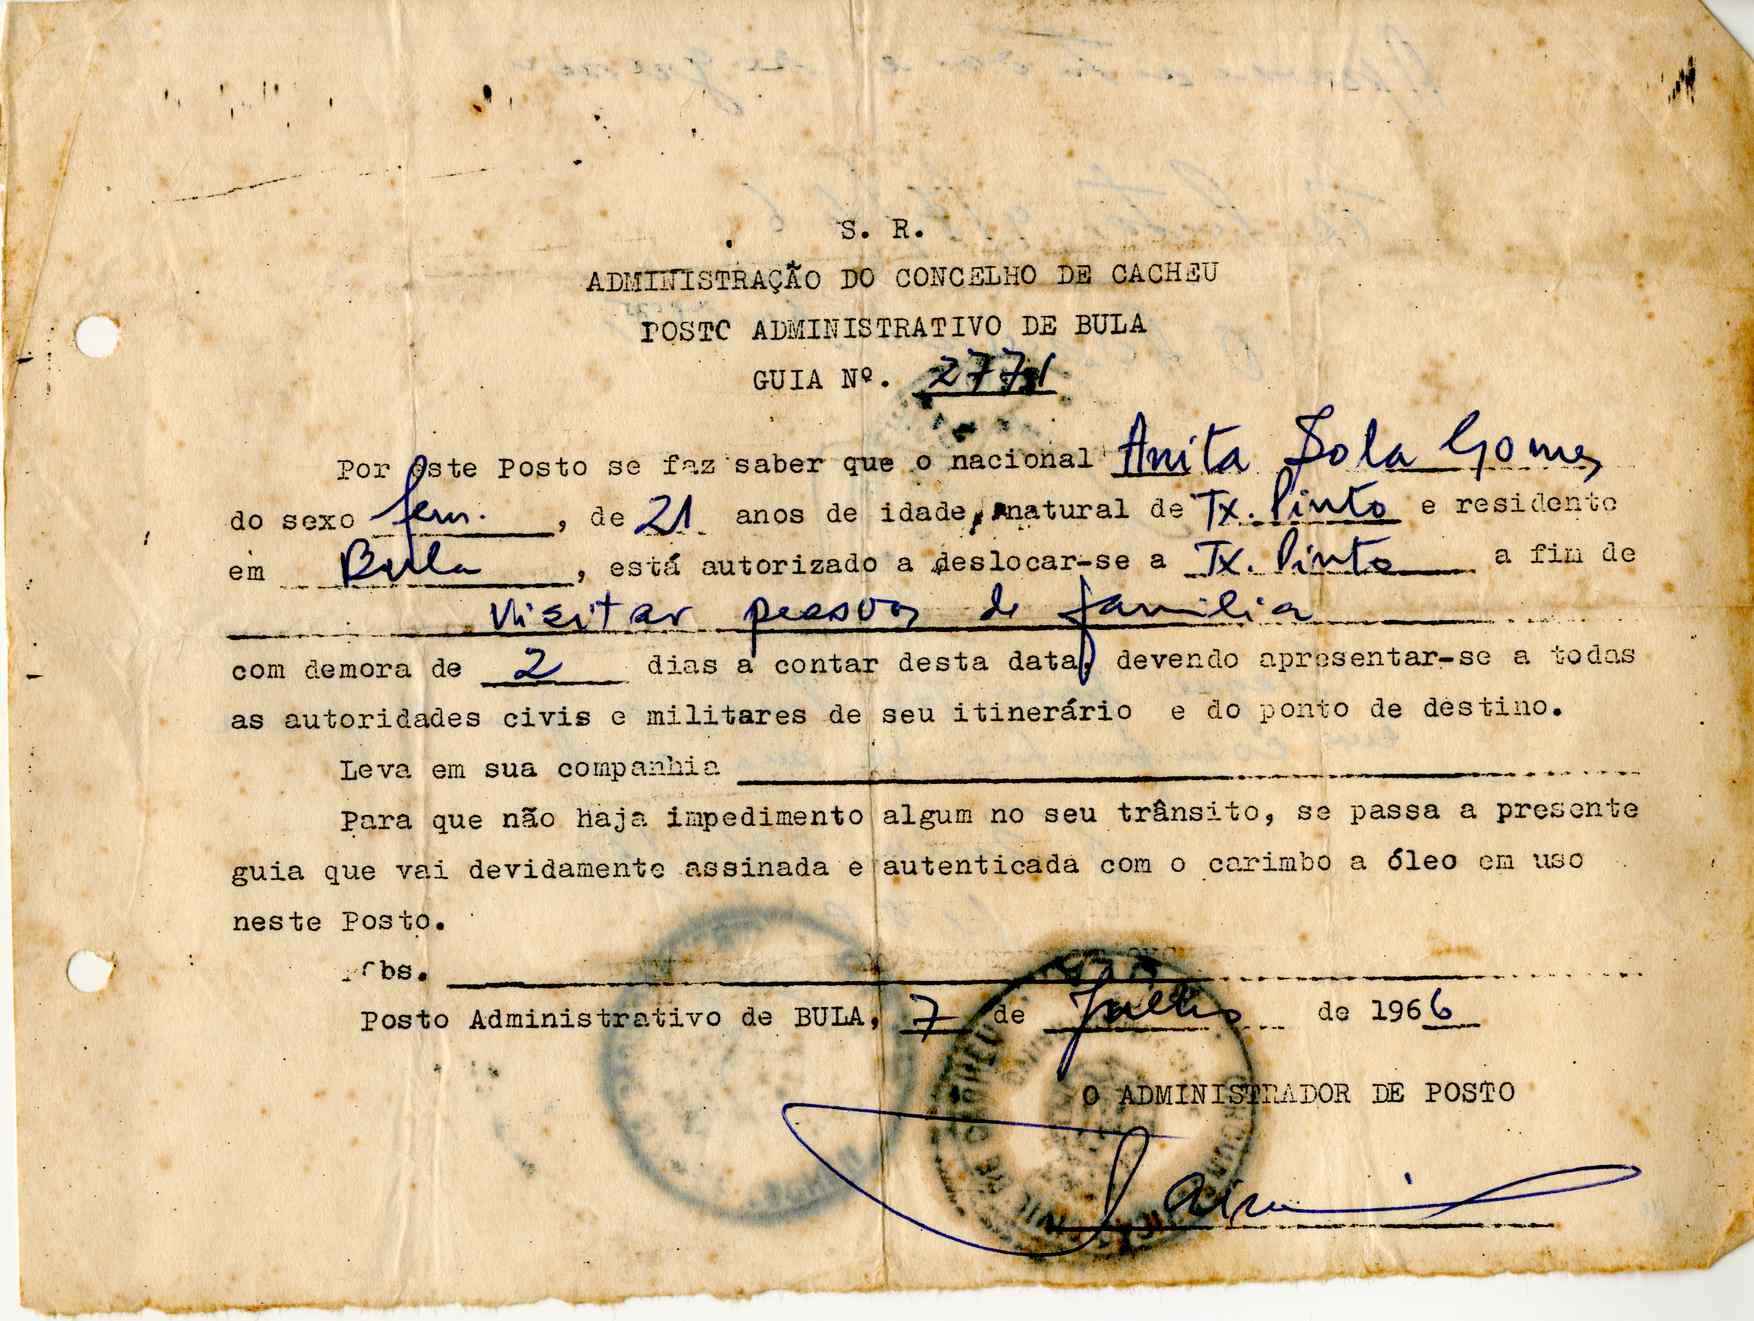 S. R.
ADMINISTRAÇÃO DO CONCELHO DE CACHEU
POSTO ADMINISTRATIVO DE BULA
GUIA Nº. 2771
Por este Posto se faz saber que o nacional Anita Dola Gomes
do sexo fem. , de 21 anos de idade, natural de Tx. Pinto e residente
em Bula , está autorizado a deslocar-se a Tx. Pinto a fim de
visitar pessoas de familia
com demora de 2 dias a contar desta data, devendo apresentar-se a todas
as autoridades civis e militares de seu itinerário e do ponto de destino.
Leva em sua companhia
Para que não haja impedimento algum no seu trânsito, se passa a presente
guia que vai devidamente assinada e autenticada com o carimbo a óleo em uso
neste Posto.
Obs.
Posto Administrativo de BULA, 7 de Julho de 1966
O ADMINISTRADOR DE POSTO